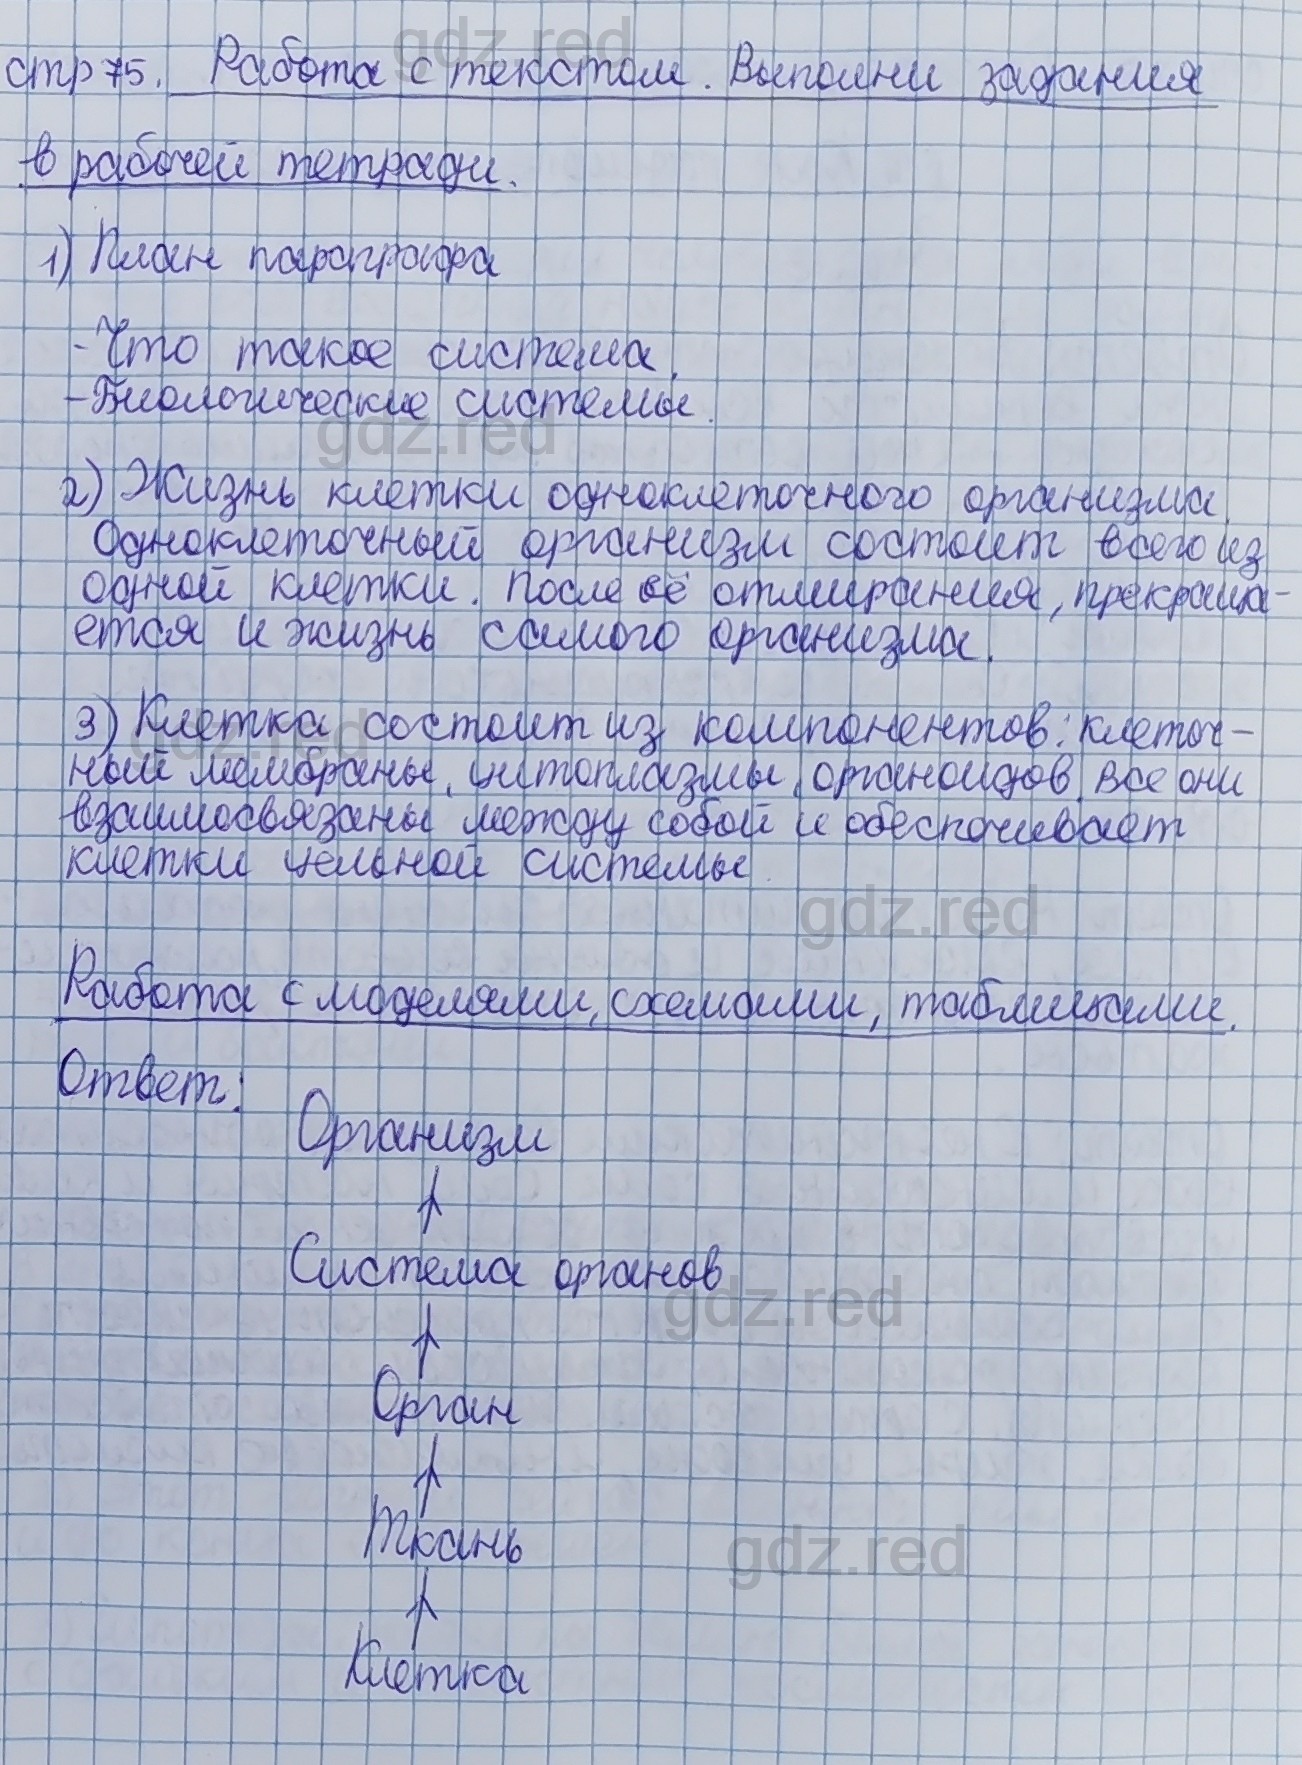 стр 75. Работа с текстом. Выполни задания
в рабочей тетради.
1) План параграфа
- Что такое система.
- Биологические системы.
2) Жизнь клетки одноклеточного организма.
Одноклеточный организм состоит всего из
одной клетки. После её отмирания, прекраща-
ется и жизнь самого организма.
3) Клетка состоит из компонентов: клеточ-
ный мембраны, цитоплазмы, органоидов. Все они
взаимосвязаны между собой и обеспочивает
клетки цельной системы.
Работа с моделями, схемами, таблицами.
Ответ:
Организм
↑
Система органов
↑
Орган
↑
Ткань
↑
Клетка
gdz.red
gdz.red
gdz.red
gdz.red
gdz.red
gdz.red